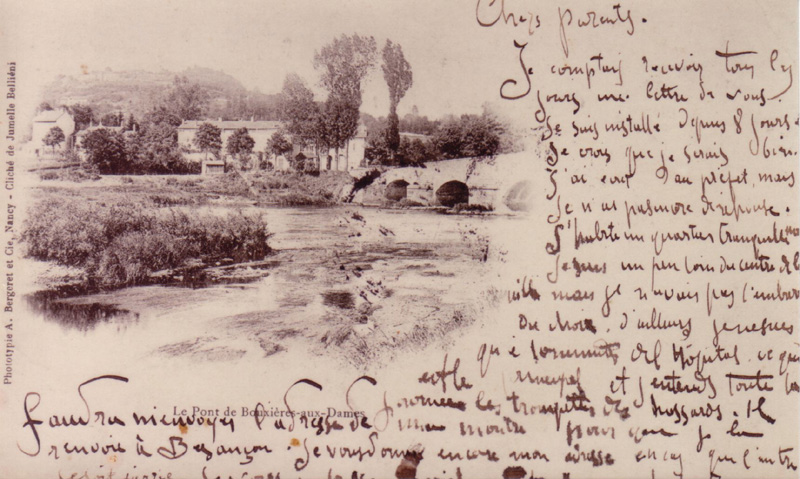 Chers parents.
Je comptais recevoir tous les
jours une lettre de vous.
Je suis installé depuis 8 jours.
Je crois que je serais bien.
J'ai ecrit au préfet, mais
Je n'ai pas encore de réponse.
J'habite un quartier tranquille
Je suis un peu loin du centre de la
ville mais je n'avais pas l'embarras
Du choix. D'ailleurs je ne suis
qu'a minutes de l'hôpital. ce qui
est le principal et j'entends toute la
journée les trompettes des hussards. Il
faudra m'envoyer l'adresse de ma montre pour que je la
renvoie à Besançon. Je vous donne encore mon adresse en cas que l'autre
Le Pont de Bouxières-aux-Dames
Phototypie A. Bergeret et Cie, Nancy - Cliché de Jumelle Belliéni